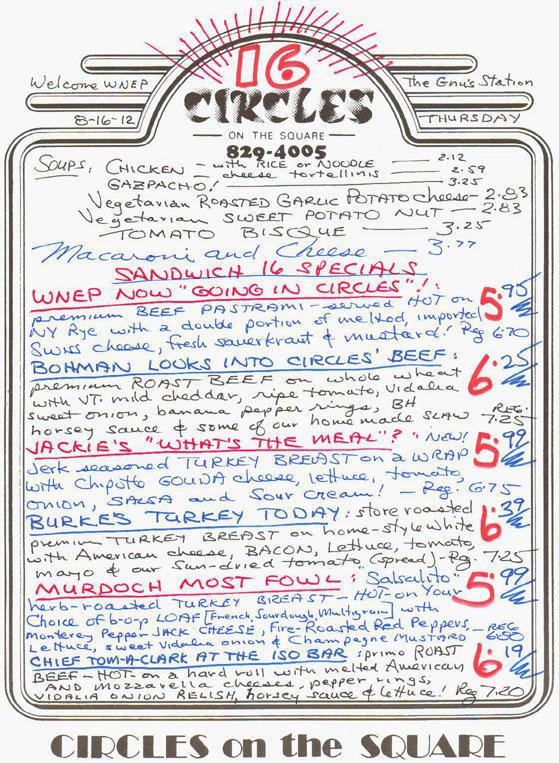 16
Welcome WNEP
The Gnu's Station
CIRCLES
8-16-12
ON THE SQUARE
THURSDAY
829-4005
Soups: CHICKEN - with RICE or NOODLE — 2.12
- cheese tortellinis — 2.59
GAZPACHO! — 3.25
Vegetarian ROASTED GARLIC POTATO cheese - 2.83
Vegetarian SWEET POTATO NUT — 2.83
TOMATO BISQUE — 3.25
Macaroni and Cheese — 3.77
SANDWICH 16 SPECIALS
WNEP NOW "GOING IN CIRCLES"!: 5.95
premium BEEF PASTRAMI - served HOT on
NY Rye with a double portion of melted, imported
Swiss cheese, fresh sauerkraut & mustard! Reg 6.70
BOHMAN LOOKS INTO CIRCLES' BEEF: 6.25
premium ROAST BEEF on whole wheat
with VT. mild cheddar, ripe tomato, Vidalia
sweet onion, banana pepper rings, BH
horsey sauce & some of our home made SLAW REG. 7.25
JACKIE'S "WHAT'S THE MEAL"? "NEW! 5.99
Jerk seasoned TURKEY BREAST on a WRAP
with Chipotle GOUDA cheese, lettuce, tomato,
onion, SALSA and Sour Cream! - Reg. 6.75
BURKE'S TURKEY TODAY: store roasted 6.39
premium TURKEY BREAST on home-style white
with American cheese, BACON, Lettuce, tomato,
mayo & our Sun-dried tomato (spread) - Rg. 7.25
MURDOCH MOST FOWL: "Salsalito" 5.99
herb-roasted TURKEY BREAST - HOT - on Your
Choice of b-o-p LOAF [French, Sourdough, Multigrain] with
Monterey Pepper JACK CHEESE, Fire-Roasted Red Peppers, — REG
Lettuce, sweet Vidalia onion & Champagne MUSTARD 6.50
CHIEF TOM-A-CLARK AT THE ISO BAR: primo ROAST 6.19
BEEF - HOT - on a hard roll with melted American
AND Mozzarella cheeses, pepper rings,
VIDALIA ONION RELISH, horsey sauce & lettuce! Reg 7.20
CIRCLES on the SQUARE